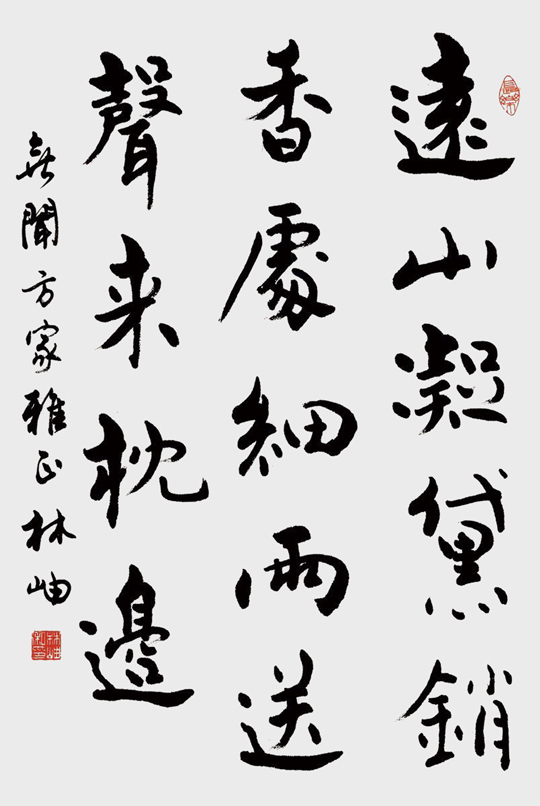 遠山凝黛銷
香處細雨送
聲来枕邊
喜聞方家雅正林岫